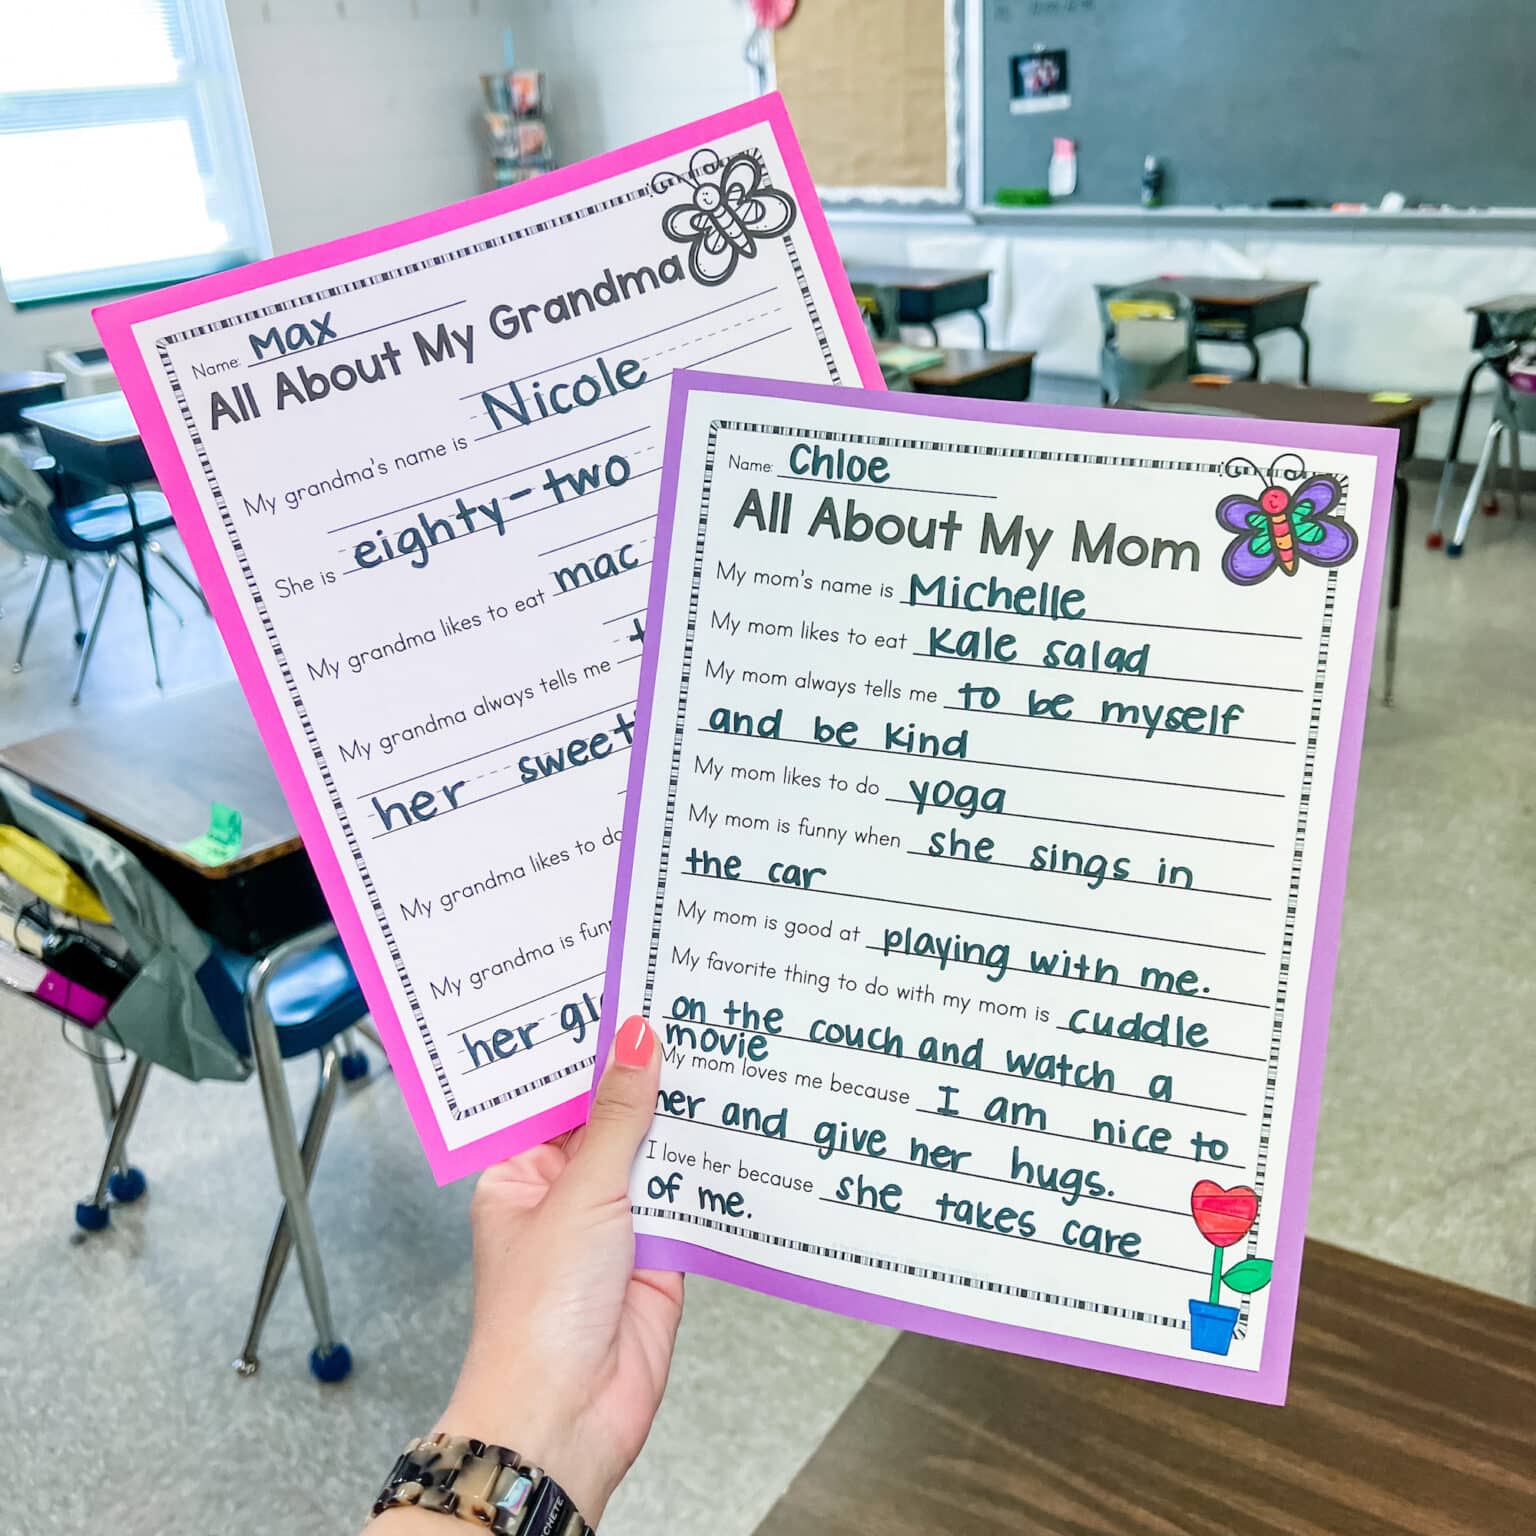 Name: Max
All About My Grandma
My grandma's name is Nicole
She is eighty-two
My grandma likes to eat mac
My grandma always tells me
her sweet
My grandma likes to do
My grandma is fun
her gl
Name: Chloe
All About My Mom
My mom's name is Michelle
My mom likes to eat Kale salad
My mom always tells me to be myself
and be kind
My mom likes to do yoga
My mom is funny when she sings in
the car
My mom is good at playing with me.
My favorite thing to do with my mom is cuddle
on the couch and watch a
movie
My mom loves me because I am nice to
her and give her hugs.
I love her because she takes care
of me.